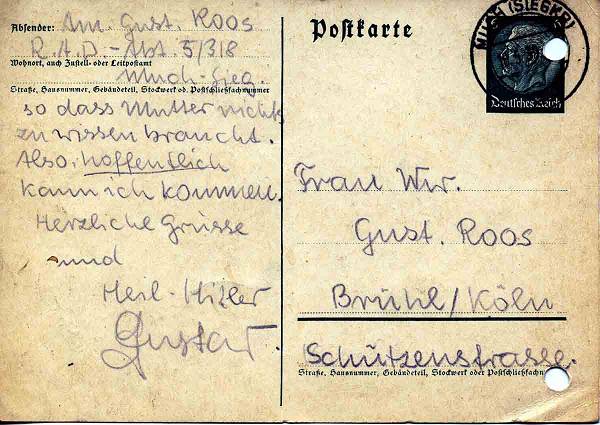 Absender: Am. Gust. Roos
R.A.D.-Abt. 5/318
Wohnort, auch Zustell- oder Leitpostamt
Much-Sieg.
Straße, Hausnummer, Gebäudeteil, Stockwerk od. Postschließfachnummer
so dass Mutter nichts
zu wissen braucht.
Also, hoffentlich
kann ich kommen.
Herzliche Grüsse
und
Heil-Hitler
Gustav.
Postkarte
MUCH (SIEGKR)
Deutsches Reich
Frau Wwr.
Gust. Roos
Brühl/Köln
Schützenstrasse.
Straße, Hausnummer, Gebäudeteil, Stockwerk oder Postschließfachn